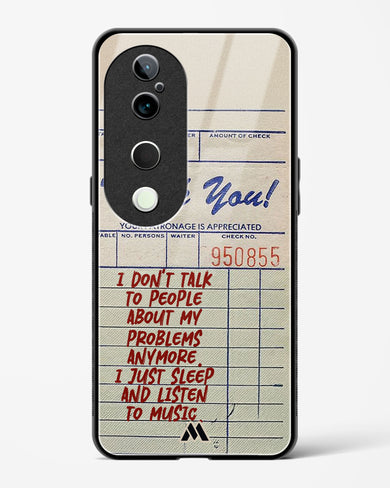 AMOUNT OF CHECK
You!
PATRONAGE IS APPRECIATED
NO. PERSONS WAITER CHECK NO.
950855
I DON'T TALK
TO PEOPLE
ABOUT MY
PROBLEMS
ANYMORE.
I JUST SLEEP
AND LISTEN
TO MUSIC